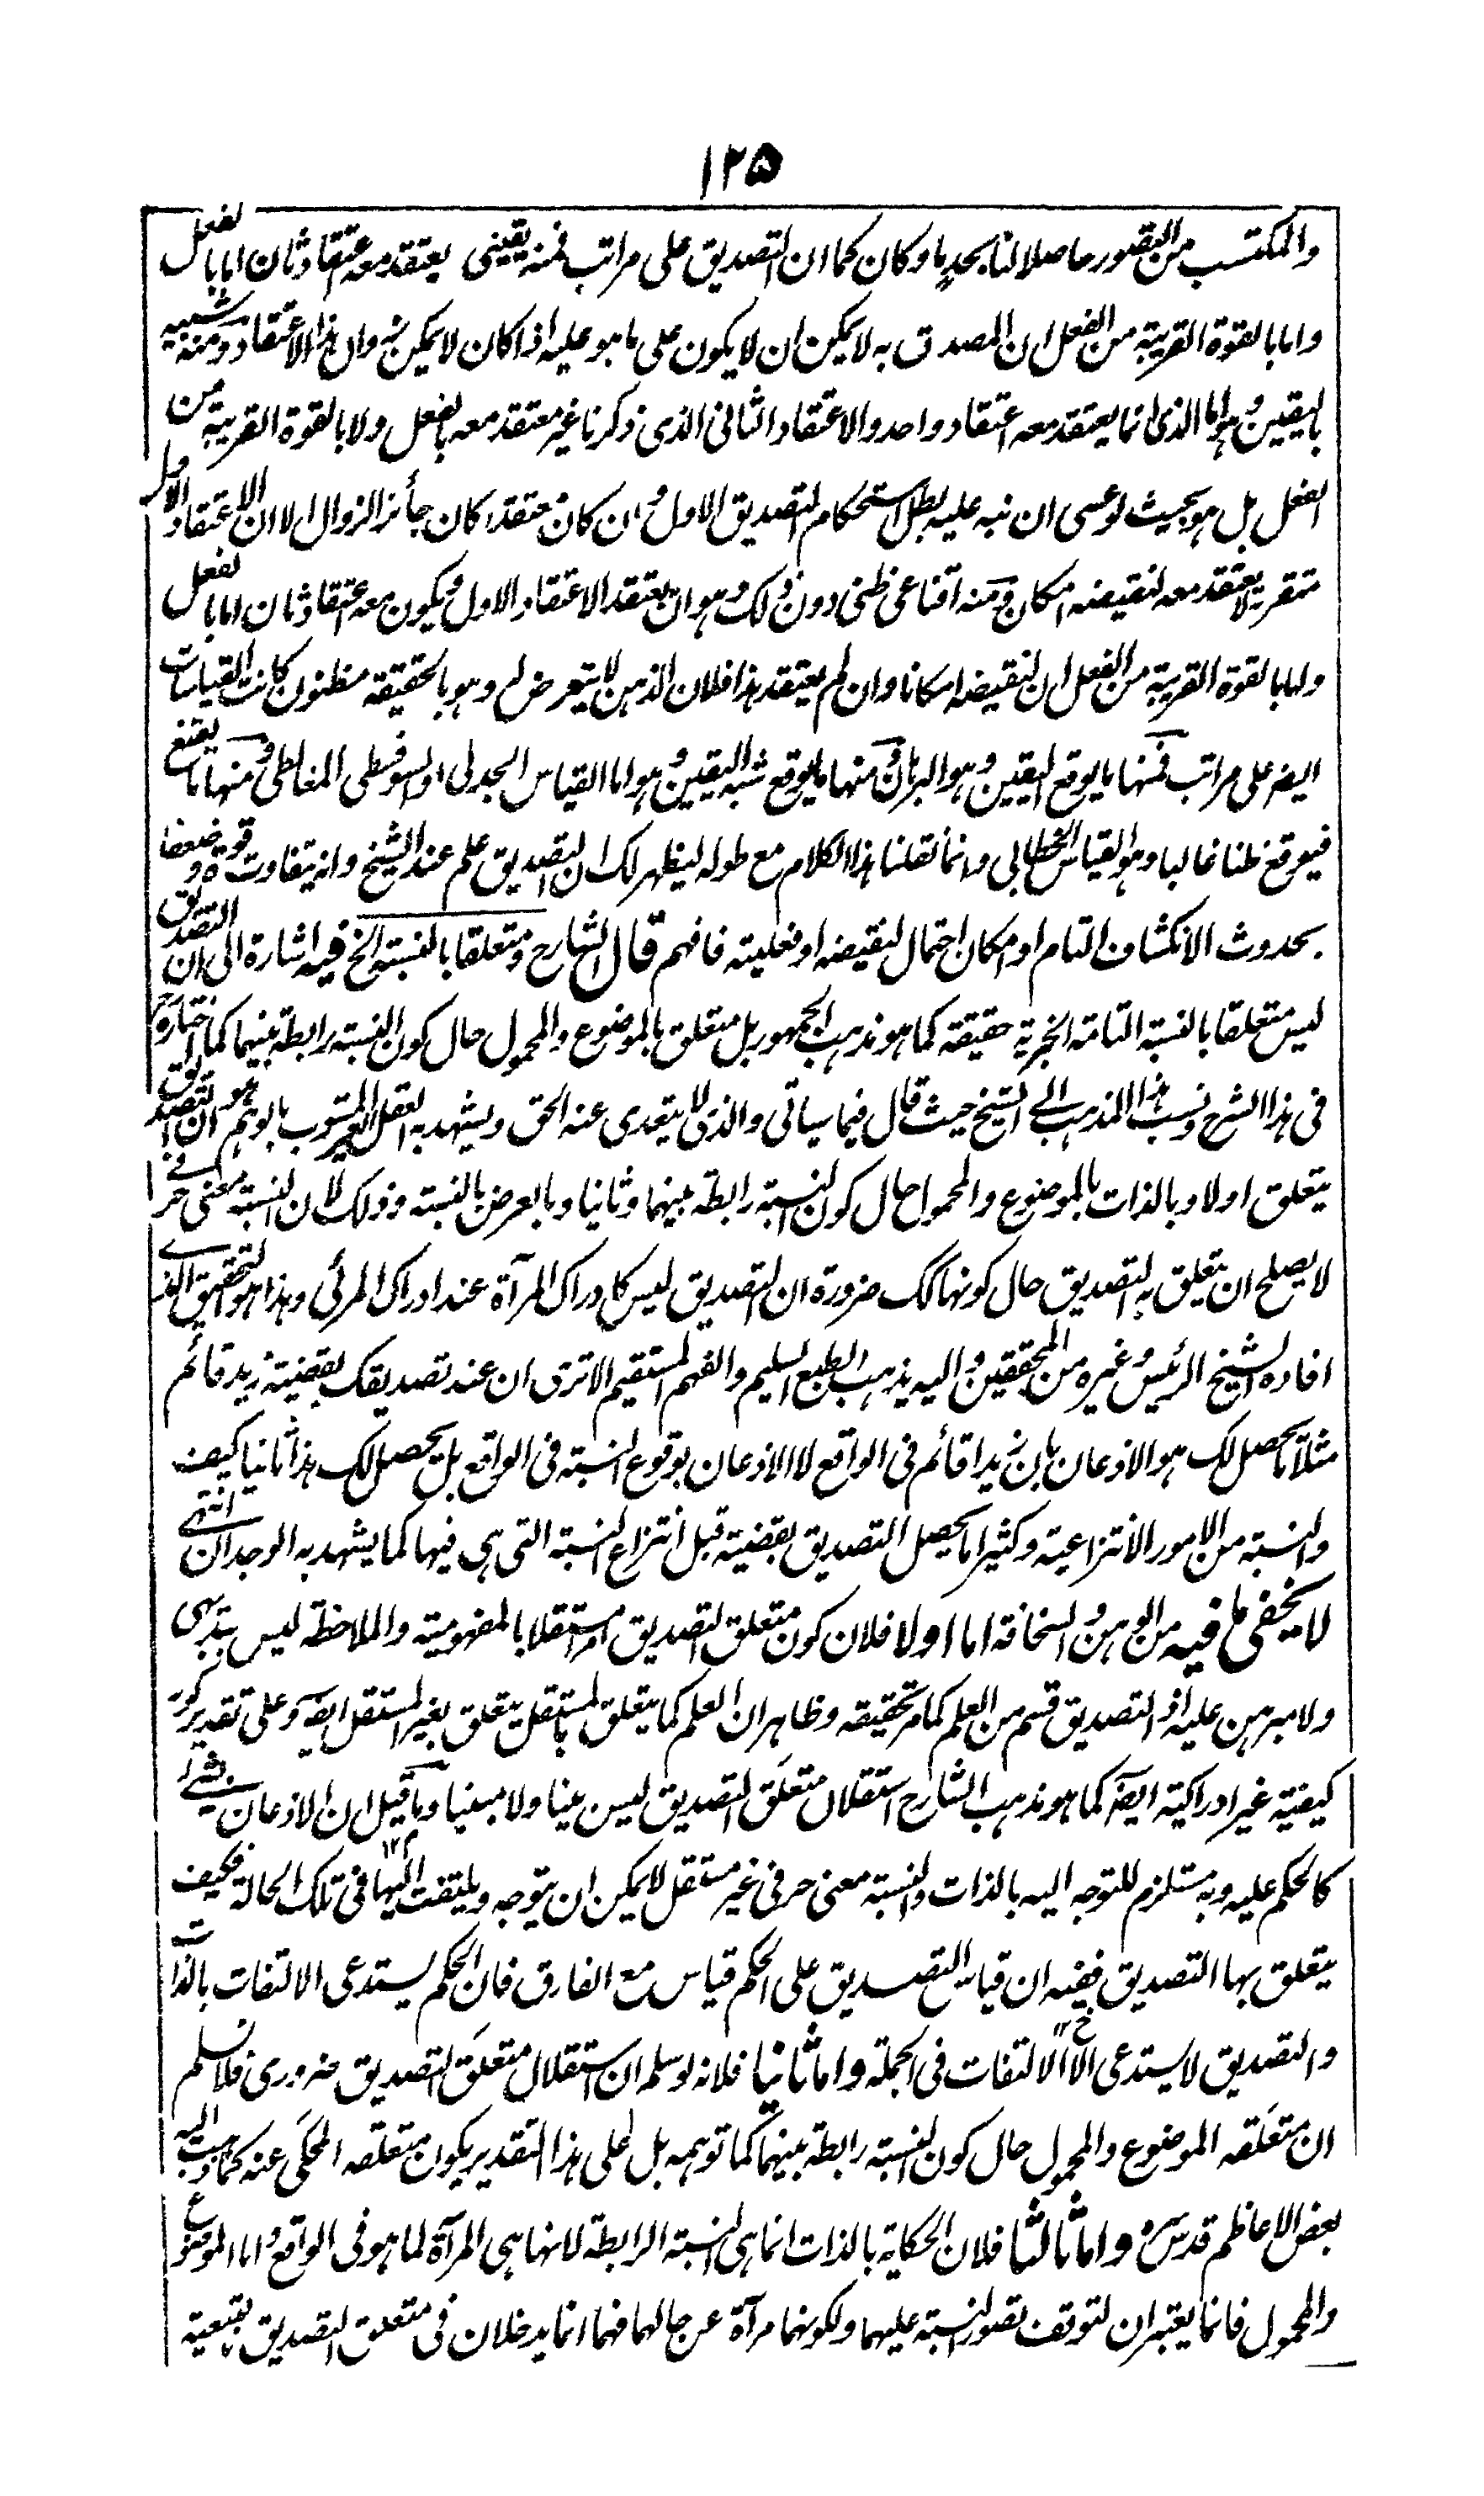 ۱۲۵
والمكتسب من التصور حاصلا لنا بحدٍ ما وكان كما ان التصديق على مراتب فمنه يقينى يعتقد معه اعتقاد ثان اما بالفعل
واما بالقوة القريبة من الفعل ان المصدق به لا يمكن ان لا يكون على ما هو عليه اذا كان لا يمكن زوال هذا الاعتقاد ومنه شبيه
باليقين وهو اما الذى انما يعتقد معه اعتقاد واحد والاعتقاد الثانى الذى ذكرنا غير معتقد معه بالفعل ولا بالقوة القريبة من
الفعل بل هو بحيث لو عسى ان نبه عليه بطل استحكام التصديق الاول وان كان معتقدا كان جائز الزوال الا ان الاعتقاد الاول
متقرر لا يعتقد معه لنقيضه امكان ومنه اقناعى ظنى دون ذلك وهو ان يعتقد الاعتقاد الاول ويكون معه اعتقاد ثان اما بالفعل
واما بالقوة القريبة من الفعل ان لنقيضه امكانا وان لم يعتقد هذا فلان الذهن لا يتعرض له وهو بالحقيقة مظنون كانت القياسات
ايضا على مراتب فمنها ما يوقع اليقين وهو البرهان ومنها ما يوقع شبه اليقين وهو اما القياس الجدلى او السوفسطى المغالطى ومنها ما يقنع
فيوقع ظنا غالبا وهو القياس الخطابى وانما نقلنا هذا الكلام مع طوله ليظهر لك ان التصديق علم عند الشيخ وانه يتفاوت قوة وضعفا
بحدوث الانكشاف التام او امكان احتمال لنقيضه او فعليته فافهم قال الشارح ومتعلقا بالنسبة الخ فيه اشارة الى ان التصديق
ليس متعلقا بالنسبة التامة الخبرية حقيقة كما هو مذهب الجمهور بل متعلق بالموضوع والمحمول حال كون النسبة رابطة بينهما كما اختاره
فى هذا الشرح ونسب هذا المذهب الى الشيخ حيث قال فيما سياتى والذى لا يتعدى عنه الحق ويشهد به العقل الغير المشوب بالوهم هو ان التصديق
يتعلق اولا وبالذات بالموضوع والمحمول حال كون النسبة رابطة بينهما وثانيا وبالعرض بالنسبة وذلك لان النسبة معنى حرفى
لا يصلح ان يتعلق به التصديق حال كونها كك ضرورة ان التصديق ليس كادراك المرآة عند ادراك المرئى وهذا هو التحقيق الذى
افاده الشيخ الرئيس وغيره من المحققين واليه يذهب الطبع السليم والفهم المستقيم الا ترى ان عند تصديقك بقضية زيد قائم
مثلا ما يحصل لك هو الاذعان بان زيدا قائم فى الواقع لا الاذعان بوقوع النسبة فى الواقع بل يحصل لك هذا ثانيا كيف
والنسبة من الامور الانتزاعية وكثيرا ما يحصل التصديق بقضية قبل انتزاع النسبة التى هى فيها كما يشهد به الوجدان انتهى
لا يخفى ما فيه من الوهن والسخافة اما اولا فلان كون متعلق التصديق امرا مستقلا بالمفهومية والملاحظة ليس ببديهى
ولا مبرهن عليه اذ التصديق قسم من العلم كما مر تحقيقه وظاهر ان العلم كما يتعلق بالمستقل يتعلق بغير المستقل ايضا وعلى تقدير كونه
كيفية غير ادراكية ايضا كما هو مذهب الشارح استقلال متعلق التصديق ليس بينا ولا مبينا وما قيل ان الاذعان بشئ
كالحكم عليه وبه مستلزم للتوجه اليه بالذات والنسبة معنى حرفى غير مستقل لا يمكن ان يتوجه ويلتفت اليها فى تلك الحالة فكيف
يتعلق بها التصديق ففيه ان قياس التصديق على الحكم قياس مع الفارق فان الحكم يستدعى الالتفات بالذات
والتصديق لا يستدعى الا الالتفات فى الجملة واما ثانيا فلانه لو سلم ان استقلال متعلق التصديق ضرورى فلا نسلم
ان متعلقه الموضوع والمحمول حال كون النسبة رابطة بينهما كما توهمه بل على هذا التقدير يكون متعلقه المحكى عنه كما ذهب اليه
بعض الاعاظم قدس سره واما ثالثا فلان الحكاية بالذات انما هى النسبة الرابطة لانها هى المرآة لما هو فى الواقع واما الموضوع
والمحمول فانما يعتبران لتوقف تصور النسبة عليهما ولكونهما مرآة عن حالهما فهما انما يدخلان فى متعلق التصديق بتبعية